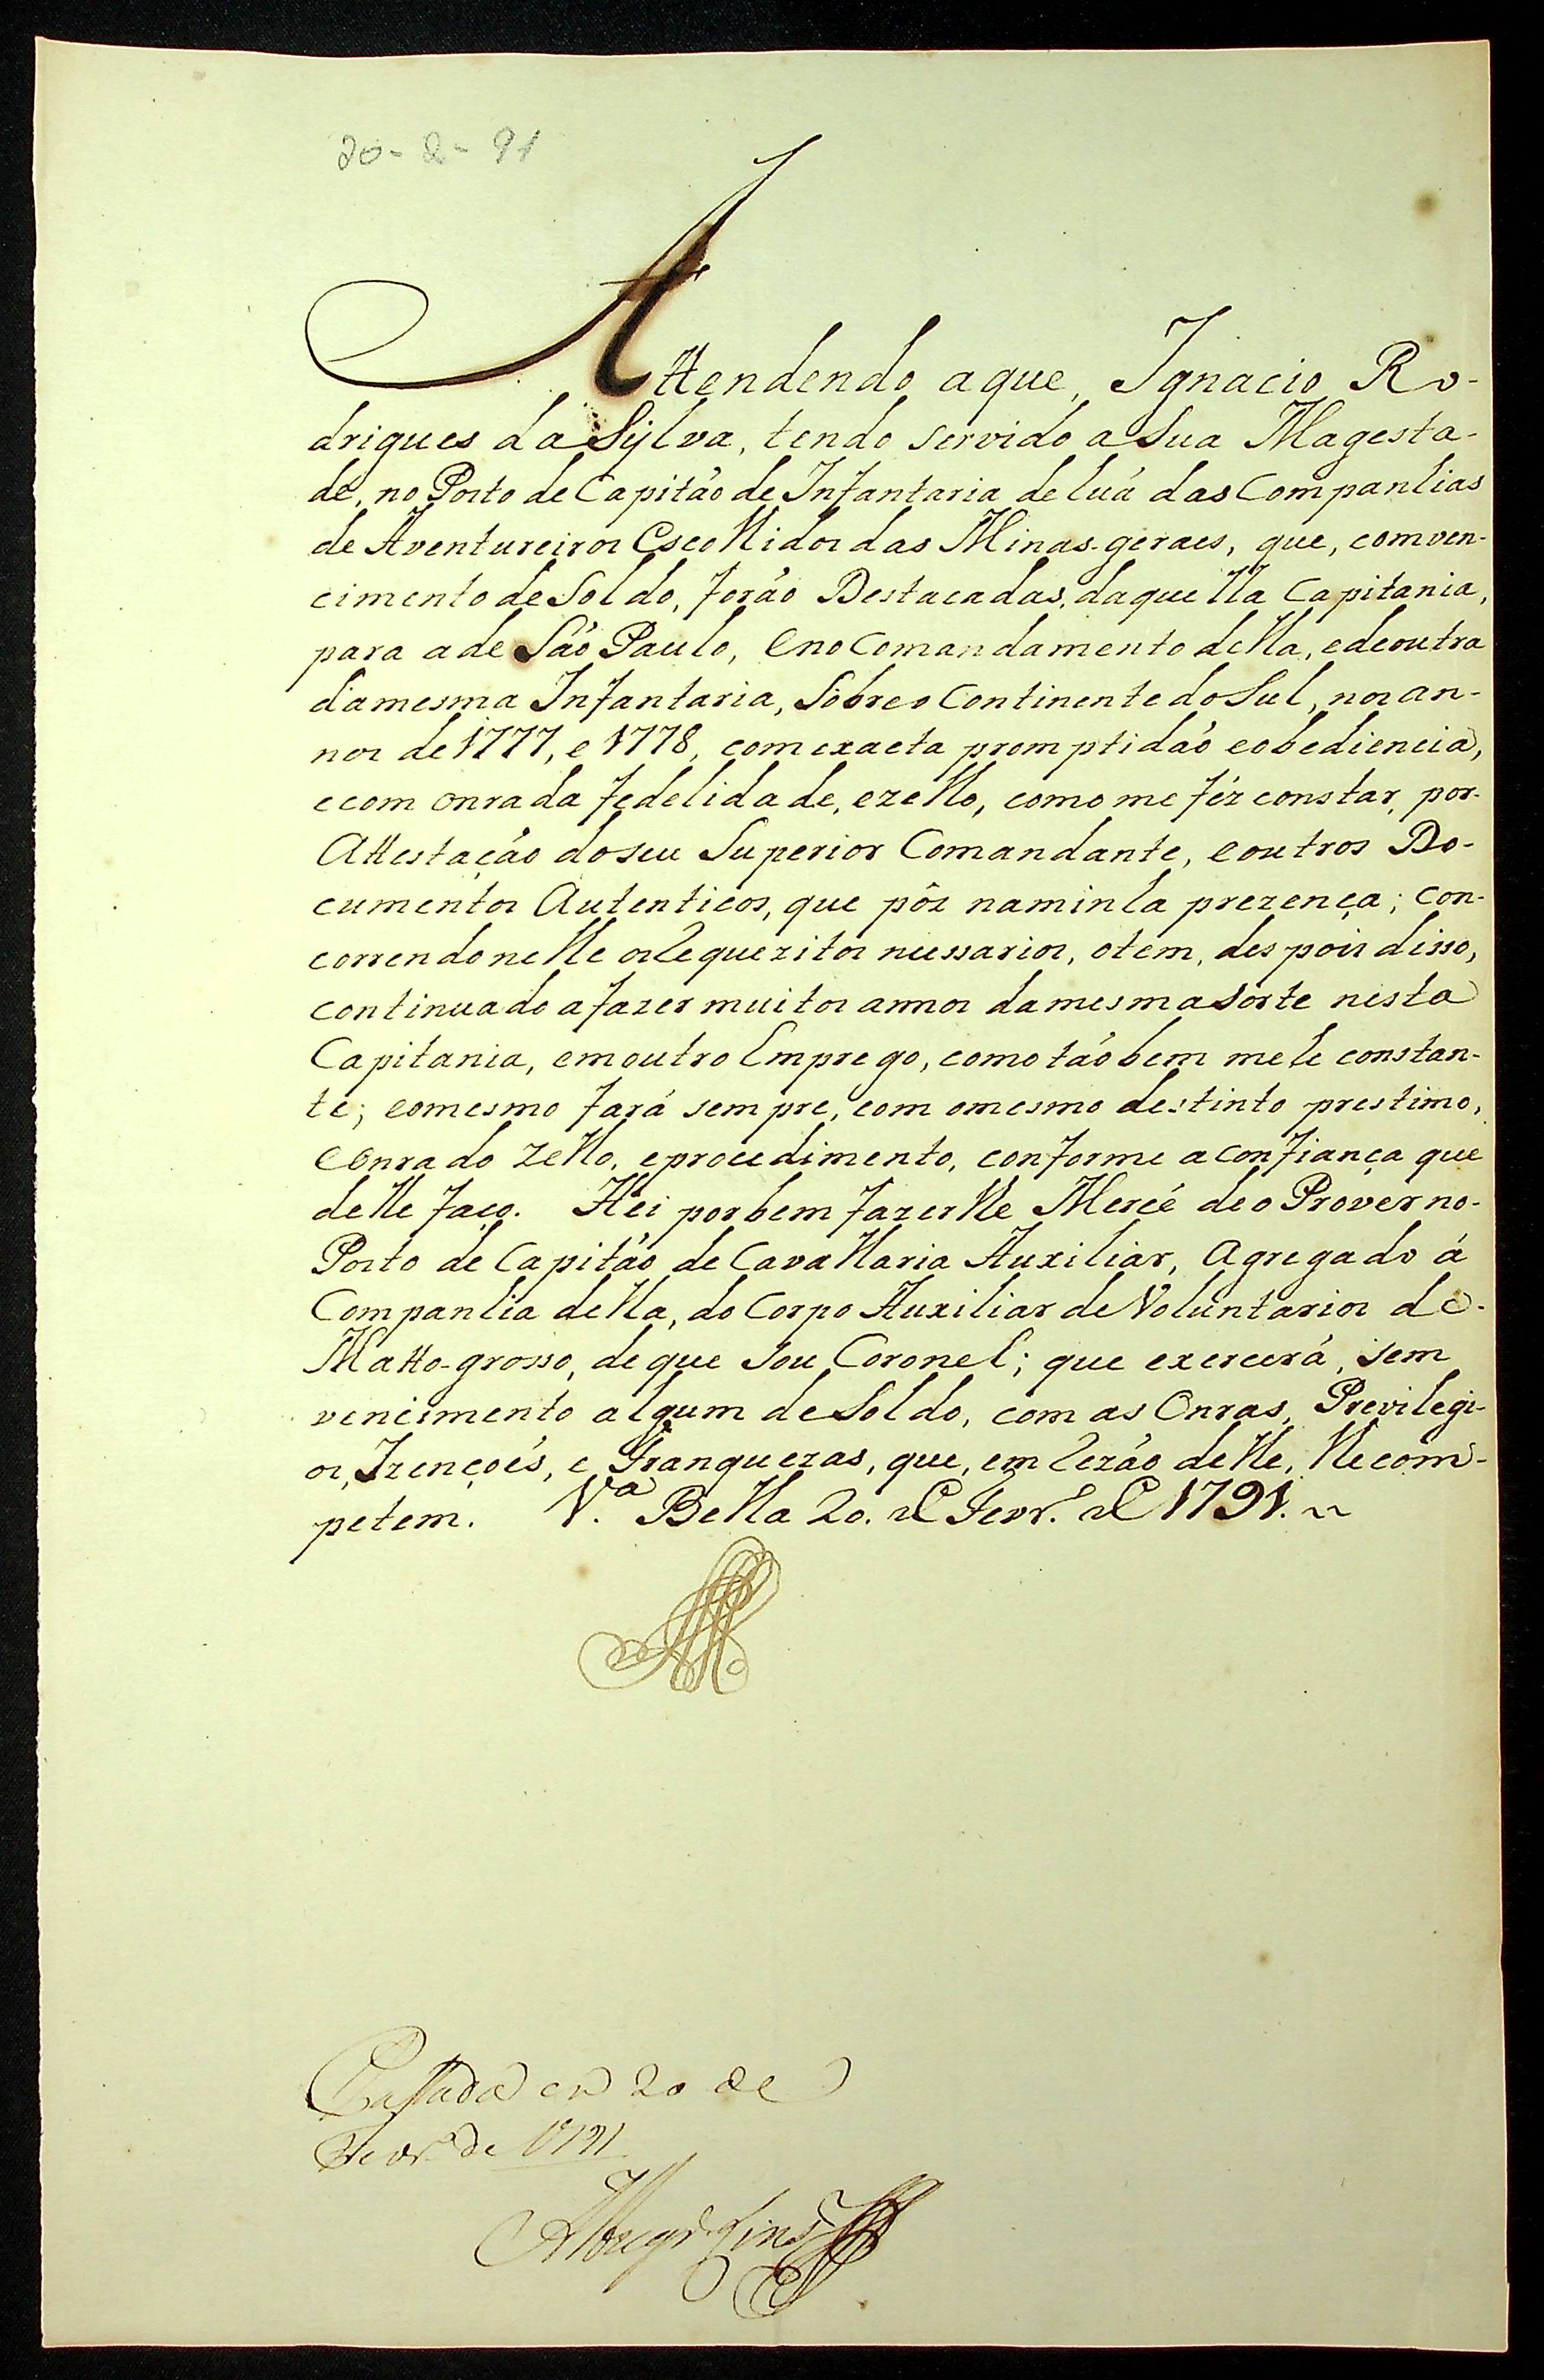 20-2-91
Attendendo aque, Ignacio Ro-
drigues da Sylva, tendo servido a Sua Magesta-
de, no Posto de Capitão de Infantaria de huá das Companhias
de Aventureiros Escolhidos das Minas-geraes, que, comven-
cimento de Soldo, forão Destacadas, daquella Capitania,
para a de São Paulo, e no Comandamento della, e de outra
da mesma Infantaria, Sobre o Continente do Sul, nos an-
nos de 1777, e 1778, com exacta promptidão e obediencia,
e com onrada fedelidade, e zello, como me féz constar, por-
Attestação do seu Superior Comandante, e outros Do-
cumentos Autenticos, que pôs na minha prezença; con-
correndo nelle os Requezitos nessarios, o tem, des pois disso,
continuado a fazer muitos annos da mesma sorte nesta
Capitania, em outro Emprego, como tão bem me he constan-
te; e o mesmo fará sempre, com o mesmo destinto prestimo,
e onrado Zello, e procedimento, conforme a confiança que
delle faço. Hei por bem fazerlhe Mercê de o Prover no-
Posto de Capitão de Cavallaria Auxiliar, Agregado á
Companhia della, do Corpo Auxiliar de Voluntarios de-
Matto-grosso, de que Sou Coronel; que exercerá, sem
vencimento algum de Soldo, com as Onras, Previlegi-
os, Izençoés, e Franquezas, que, em Rezão delle, lhe com-
petem. V.ª Bella 20. de Fevr.º de 1791.
Passada em 20 de
Fevr.º de 1791